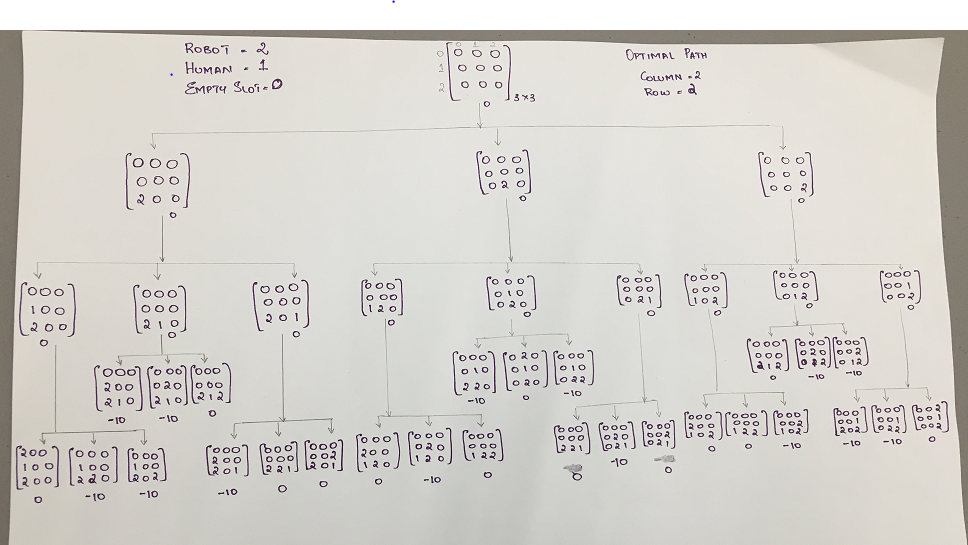 ROBOT = 2
HUMAN = 1
EMPTY SLOT = 0
0 1 2
0 0 0 0
1 0 0 0
2 0 0 0
3×3
0
OPTIMAL PATH
COLUMN = 2
ROW = 2
0 0 0
0 0 0
2 0 0
0
0 0 0
0 0 0
0 2 0
0
0 0 0
0 0 0
0 0 2
0
0 0 0
1 0 0
2 0 0
0
0 0 0
0 0 0
2 1 0
0
0 0 0
0 0 0
2 0 1
0
0 0 0
0 0 0
1 2 0
0
0 0 0
0 1 0
0 2 0
0
0 0 0
0 0 0
0 2 1
0
0 0 0
0 0 0
1 0 2
0
0 0 0
0 0 0
0 1 2
0
0 0 0
0 0 1
0 0 2
0
0 0 0
2 0 0
2 1 0
-10
0 0 0
0 2 0
2 1 0
-10
0 0 0
0 0 0
2 1 2
0
0 0 0
0 1 0
2 2 0
-10
0 2 0
0 1 0
0 2 0
0
0 0 0
0 1 0
0 2 2
-10
0 0 0
0 0 0
2 1 2
0
0 0 0
0 2 0
-10
0 0 0
0 0 2
0 1 2
-10
2 0 0
1 0 0
2 0 0
0
0 0 0
1 0 0
2 2 0
-10
0 0 0
1 0 0
2 0 2
-10
0 0 0
2 0 0
2 0 1
-10
0 0 0
0 0 0
2 2 1
0
0 0 0
0 0 2
2 0 1
0
0 0 0
2 0 0
1 2 0
0
0 0 0
0 2 0
1 2 0
-10
0 0 0
0 0 0
1 2 2
0
0 0 0
0 0 0
2 2 1
0
0 0 0
0 2 0
0 2 1
-10
0 0 0
0 0 2
0 2 1
0
0 0 0
2 0 0
1 0 2
0
0 0 0
0 0 0
1 2 2
0
0 0 0
0 0 2
1 0 2
-10
0 0 0
0 0 1
2 0 2
-10
0 0 0
0 0 1
0 2 2
-10
0 0 2
0 0 1
0 0 2
0